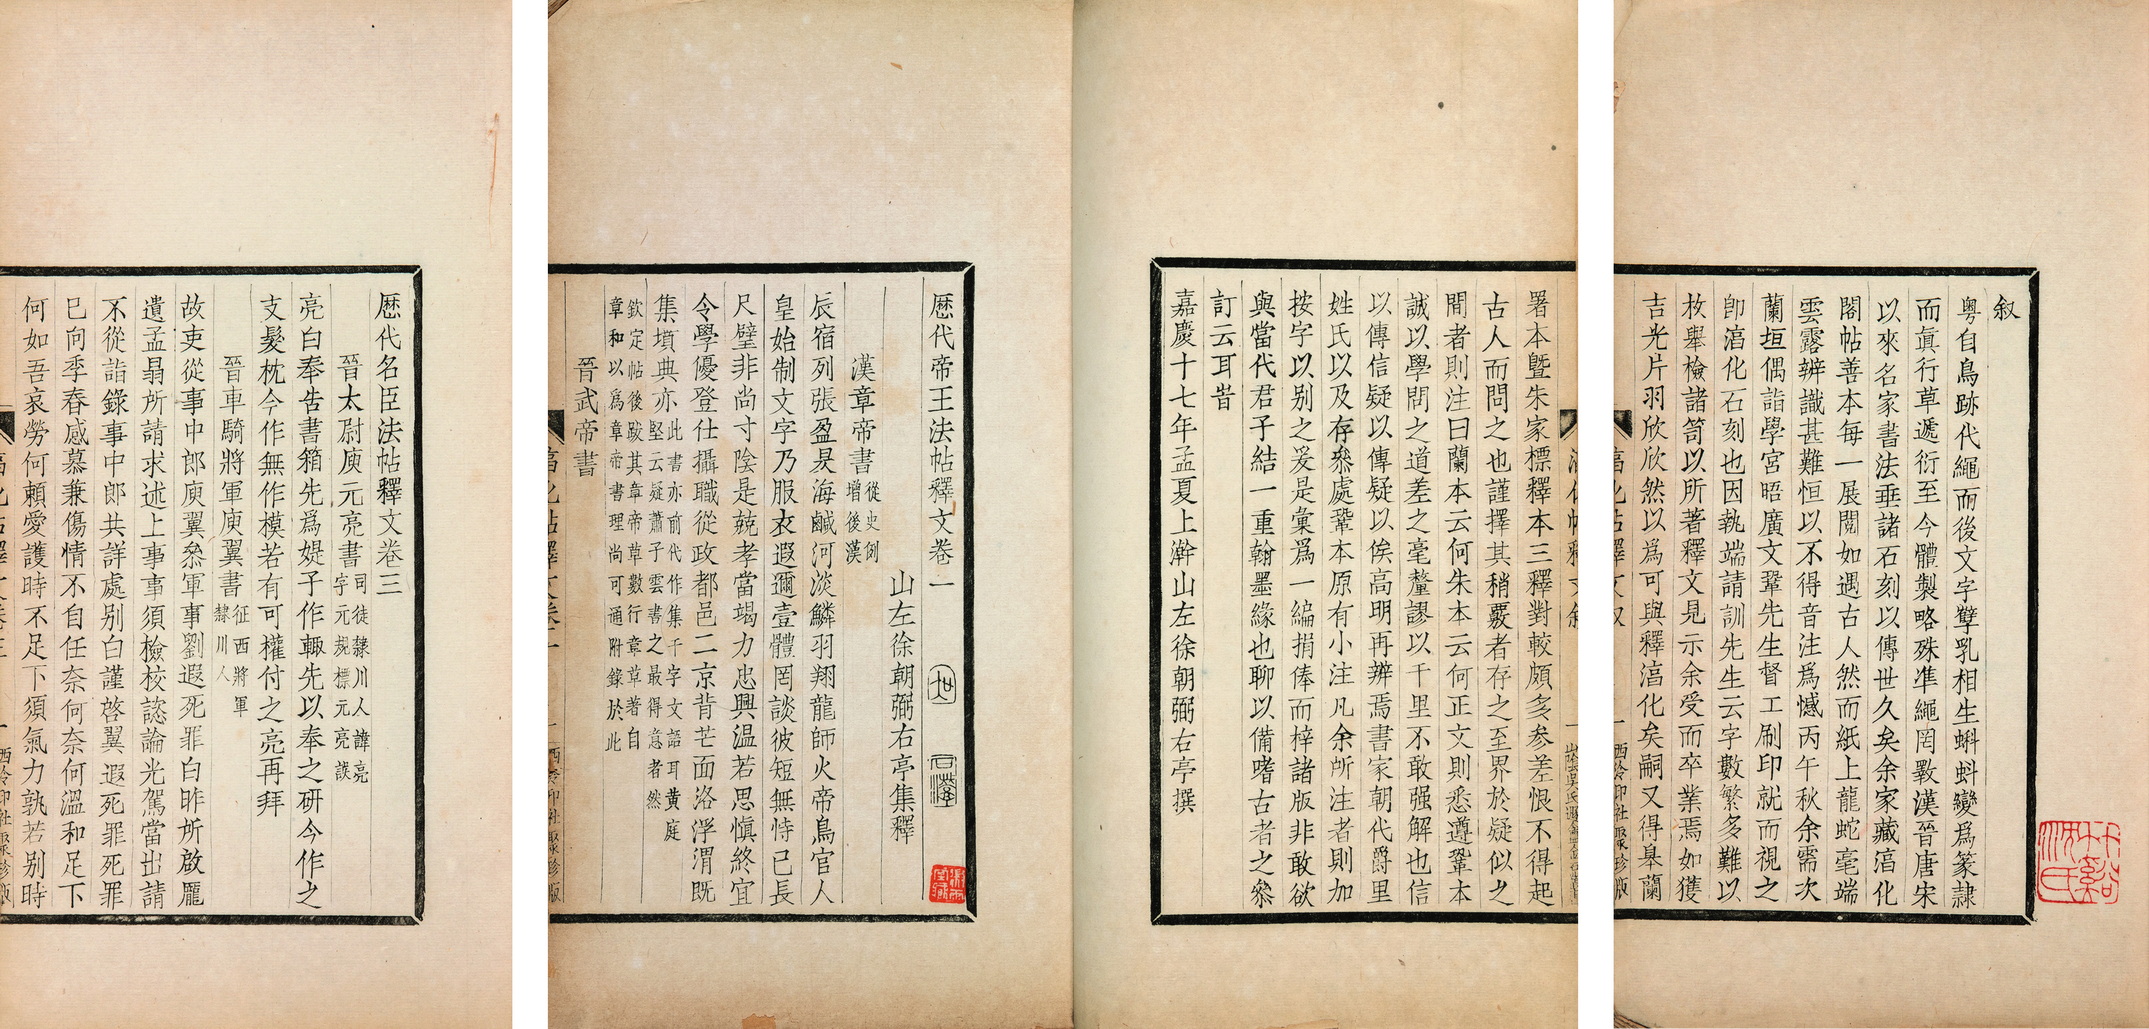 叙
粤自鳥跡代繩而後文字孳乳相生蝌蚪變爲篆隷
而眞行草遞衍至今體製略殊準繩罔斁漢晉唐宋
以來名家書法垂諸石刻以傳世久矣余家藏淳化
閣帖善本每一展閱如遇古人然而紙上龍蛇毫端
雲露辨識甚難恒以不得音注爲憾丙午秋余需次
蘭垣偶詣學宮晤廣文鞏先生督工刷印就而視之
卽淳化石刻也因執端請訓先生云字數繁多難以
枚舉檢諸笥以所著釋文見示余受而卒業焉如獲
吉光片羽欣欣然以爲可與釋淳化矣嗣又得皋蘭
署本曁朱家標釋本三釋對較頗多參差恨不得起
古人而問之也謹擇其稍覈者存之至界於疑似之
間者則注曰蘭本云何朱本云何正文則悉遵鞏本
誠以學問之道差之毫釐謬以千里不敢强解也信
以傳信疑以傳疑以俟高明再辨焉書家朝代爵里
姓氏以及存叅處鞏本原有小注凡余所注者則加
按字以别之爰是彙爲一編捐俸而梓諸版非敢欲
與當代君子結一重翰墨緣也聊以備嗜古者之叅
訂云耳旹
嘉慶十七年孟夏上澣山左徐朝弼右亭撰
歷代帝王法帖釋文卷一
山左徐朝弼右亭集釋
漢章帝書 從史例增後漢
辰宿列張盈昃海鹹河淡鱗羽翔龍師火帝鳥官人
皇始制文字乃服衣遐邇壹體罔談彼短無恃已長
尺璧非尚寸陰是兢孝當竭力忠興温若思愼終宜
令學優登仕攝職從政都邑二京背芒面洛浮渭旣
集墳典亦 此書亦前代作集千字文語耳黄庭堅云疑蕭子雲書之最得意者然
欽定帖後跋其章帝草數行章草著自
章和以爲章帝書理尚可通附錄於此
晉武帝書
歷代名臣法帖釋文卷三
晉太尉庾元亮書 司徒隸川人諱亮字元規標元亮誤
亮白奉告書箱先爲媞子作輙先以奉之研今作之
支髮枕今作無作模若有可權付之亮再拜
晉車騎將軍庾翼書 征西將軍隸川人
故吏從事中郎庾翼叅軍事劉遐死罪白昨所啟龎
遺孟晷所請求述上事事須檢校諮論光駕當出請
不從詣錄事中郎共詳處别白謹啓翼遐死罪死罪
已向季春感慕兼傷情不自任奈何奈何溫和足下
何如吾哀勞何頼愛護時不足下須氣力孰若别時